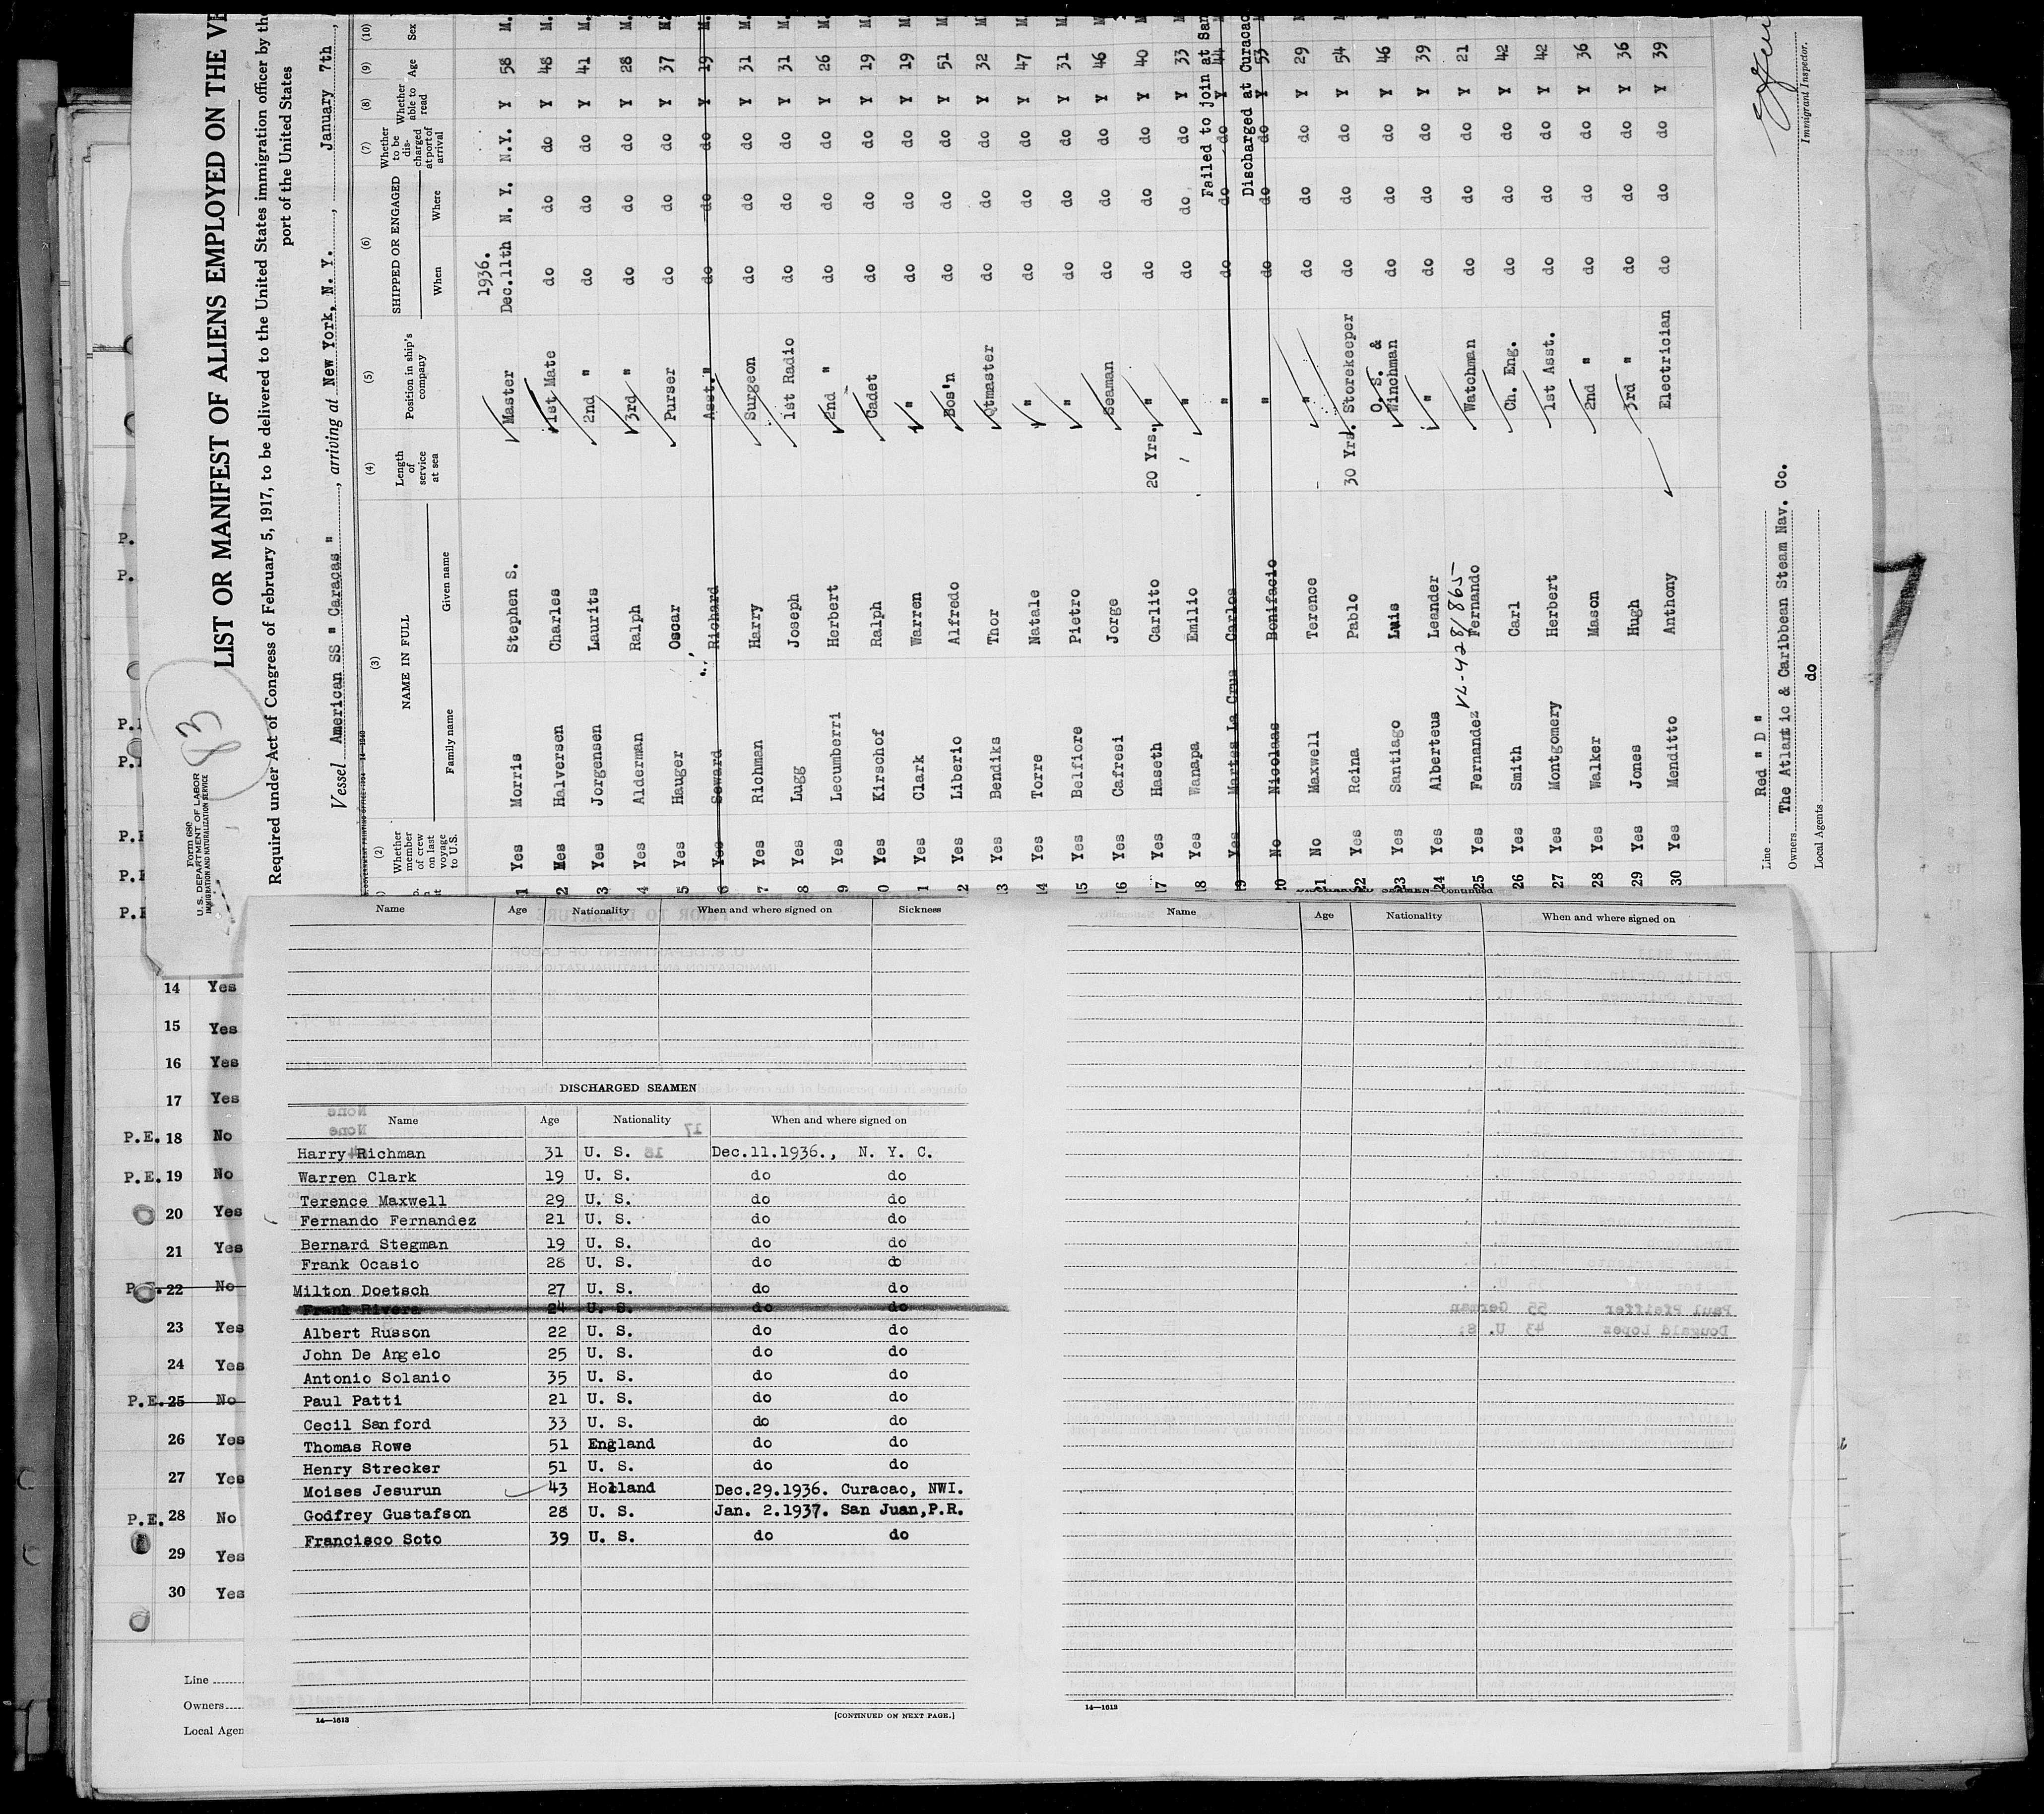 Form 680
U. S. DEPARTMENT OF LABOR
IMMIGRATION AND NATURALIZATION SERVICE
83
LIST OR MANIFEST OF ALIENS EMPLOYED ON THE VE
Required under Act of Congress of February 5, 1917, to be delivered to the United States immigration officer by the
port of the United States
Vessel American SS " Caracas " , arriving at New York, N. Y. , January 7th ,
(2) (3) (4) (5) (6) (7) (8) (9) (10)
Whether member of crew on last voyage to U.S. NAME IN FULL Family name Given name Length of service at sea Position in ship's company SHIPPED OR ENGAGED When Where Whether to be discharged at port of arrival Whether able to read Age Sex
1936.
1 Yes Morris Stephen S. Master Dec.11th N. Y. N.Y. Y 58 M.
2 Yes Halversen Charles 1st Mate do do do Y 48 M.
3 Yes Jorgensen Laurits 2nd " do do do Y 41 M.
4 Yes Alderman Ralph 3rd " do do do Y 28 M.
5 Yes Hauger Oscar Purser do do do Y 37 M.
6 Yes Seward Richard Asst." do do do Y 19 M.
7 Yes Richman Harry Surgeon do do do Y 31 M.
8 Yes Lugg Joseph 1st Radio do do do Y 31 M.
9 Yes Lecumberri Herbert 2nd " do do do Y 26 M.
0 Yes Kirschof Ralph Cadet do do do Y 19 M.
1 Yes Clark Warren " do do do Y 19 M.
2 Yes Liberio Alfredo Bos'n do do do Y 51 M.
13 Yes Bendiks Thor Qtmaster do do do Y 32 M.
14 Yes Torre Natale " do do do Y 47 M.
15 Yes Belfiore Pietro " do do do Y 31 M.
16 Yes Cafresi Jorge Seaman do do do Y 46 M.
17 Yes Haseth Carlito 20 Yrs. " do do do Y 40 M.
18 Yes Wanapa Emilio " do do do Y 33 M
Failed to join at San
19 Yes Martes La Crus Carlos " do do do Y 44
Discharged at Curacao
20 No Nicolaas Bonifacio " do do do Y 53
21 No Maxwell Terence " do do do Y 29
22 Yes Reina Pablo 30 Yrs. Storekeeper do do do Y 54
23 Yes Santiago Luis O. S. & Winchman do do do Y 46
24 Yes Alberteus Leander " do do do Y 39
VL-428/865-
25 Yes Fernandez Fernando Watchman do do do Y 21
26 Yes Smith Carl Ch. Eng. do do do Y 42
27 Yes Montgomery Herbert 1st Asst. do do do Y 42
28 Yes Walker Mason 2nd " do do do Y 36
29 Yes Jones Hugh 3rd " do do do Y 36
30 Yes Menditto Anthony Electrician do do do Y 39
Line Red " D "
Owners The Atlantic & Caribbean Steam Nav. Co.
Local Agents do
Immigrant Inspector.
P.
P.
14 Yes
15 Yes
16 Yes
17 Yes
P.E. 18 No
P.E. 19 No
20 Yes
21 Yes
P.E. 22 No
23 Yes
24 Yes
P.E. 25 No
26 Yes
27 Yes
P.E. 28 No
29 Yes
30 Yes
Line
Owners
Local Agen
Name Age Nationality When and where signed on Sickness
DISCHARGED SEAMEN
Name Age Nationality When and where signed on
Harry Richman 31 U. S. Dec.11.1936., N. Y. C.
Warren Clark 19 U. S. do do
Terence Maxwell 29 U. S. do do
Fernando Fernandez 21 U. S. do do
Bernard Stegman 19 U. S. do do
Frank Ocasio 28 U. S. do do
Milton Doetsch 27 U. S. do do
Frank Rivera 24 U. S. do do
Albert Russon 22 U. S. do do
John De Angelo 25 U. S. do do
Antonio Solanio 35 U. S. do do
Paul Patti 21 U. S. do do
Cecil Sanford 33 U. S. do do
Thomas Rowe 51 England do do
Henry Strecker 51 U. S. do do
Moises Jesurun 43 Holland Dec.29.1936. Curacao, NWI.
Godfrey Gustafson 28 U. S. Jan. 2.1937. San Juan,P.R.
Francisco Soto 39 U. S. do do
14—1613 [CONTINUED ON NEXT PAGE.]
DISCHARGED SEAMEN—Continued
Name Age Nationality When and where signed on
Paul Pfeiffer 55 German
Dougald Lopez 43 U. S.
14—1613